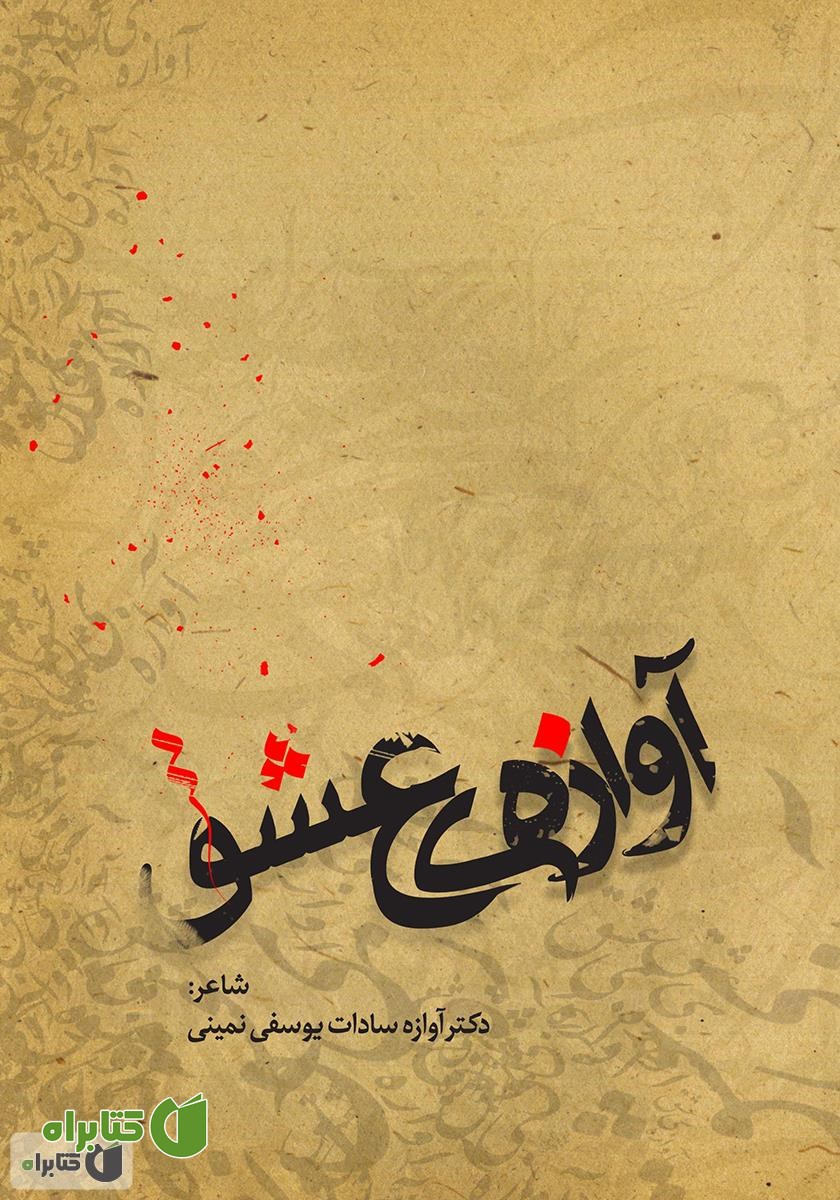 آوازه‌ی عشق
شاعر:
دکتر آوازه سادات یوسفی نمینی
کتابراه
کتابراه